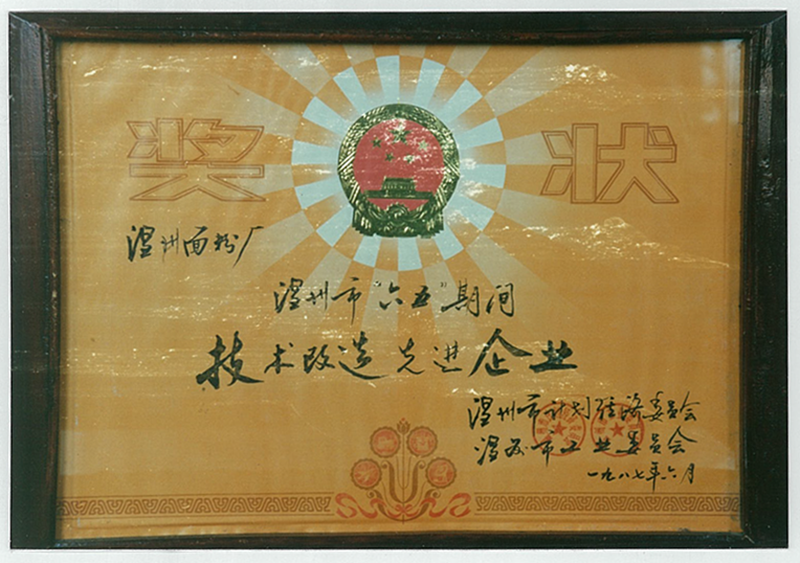 奖 状
温州面粉厂
温州市“六五”期间
技术改造先进企业
温州市计划经济委员会
温州市工业委员会
一九八七年六月